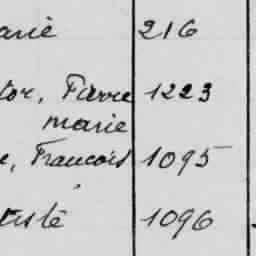 arie 216
tor, Pierre 1223
marie
e, Francois 1095
tiste 1096